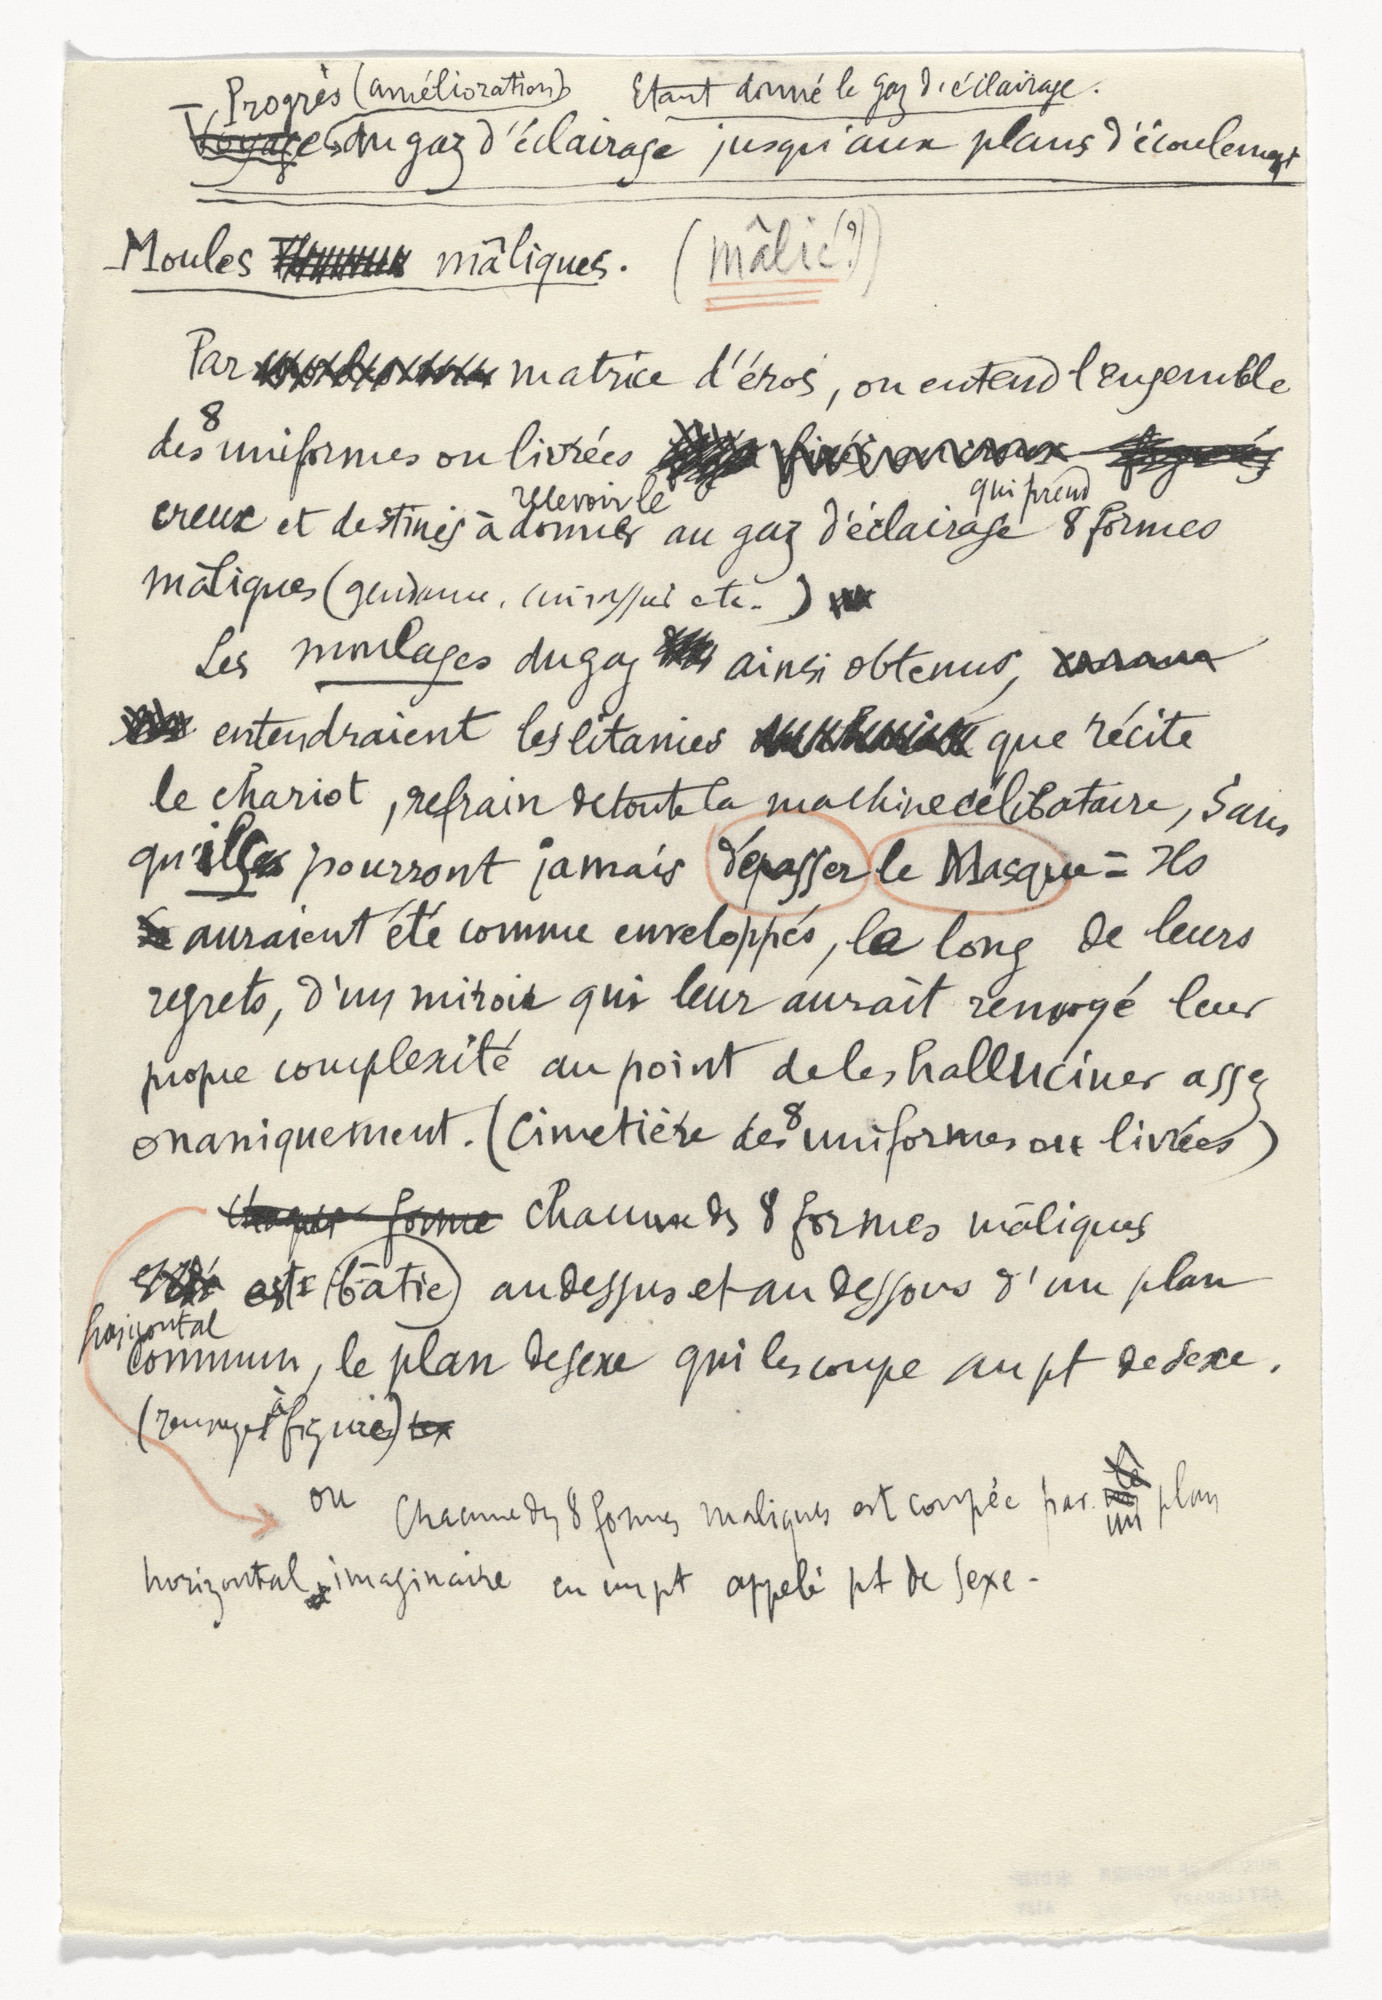 – Progrès (amélioration) Etant donné le gaz d'éclairage.
Voyage du gaz d'éclairage jusqu'aux plans d'écoulement
– Moules mâliques. (mâlic (?))
Par matrice d'éros, on entend l'ensemble
des 8 uniformes ou livrées
recevoir le qui prend
creux et destinés à donner au gaz d'éclairage 8 formes
mâliques (gendarme, cuirassier etc.)
Les moulages du gaz ainsi obtenus,
entendraient les litanies que récite
le chariot, refrain de toute la machine célibataire, Sans
qu'ils pourront jamais dépasser le Masque = Ils
auraient été comme enveloppés, le long de leurs
regrets, d'un miroir qui leur aurait renvoyé leur
propre complexité au point de les halluciner assez
onaniquement. (Cimetière des 8 uniformes ou livrées)
Chaque forme chacune des 8 formes mâliques
est (bâtie) au dessus et au dessous d'un plan
horizontal
commun, le plan de sexe qui les coupe au pt de sexe.
(renvoyer à figure)
ou Chacune des 8 formes maliques est coupée par un plan
horizontal imaginaire en un pt appelé pt de sexe –